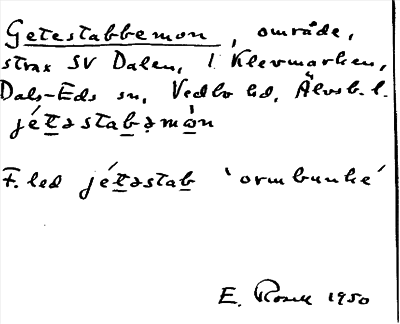 Getestabbemon, område,
strax SV Dalen, i Klevmarken,
Dals-Eds sn, Vedbo hd, Älvsb. l.
jét̲əstab̲ə̣mò̲n
F. led jét̲əstab̲ 'ormbunke'
E. Rosell 1950